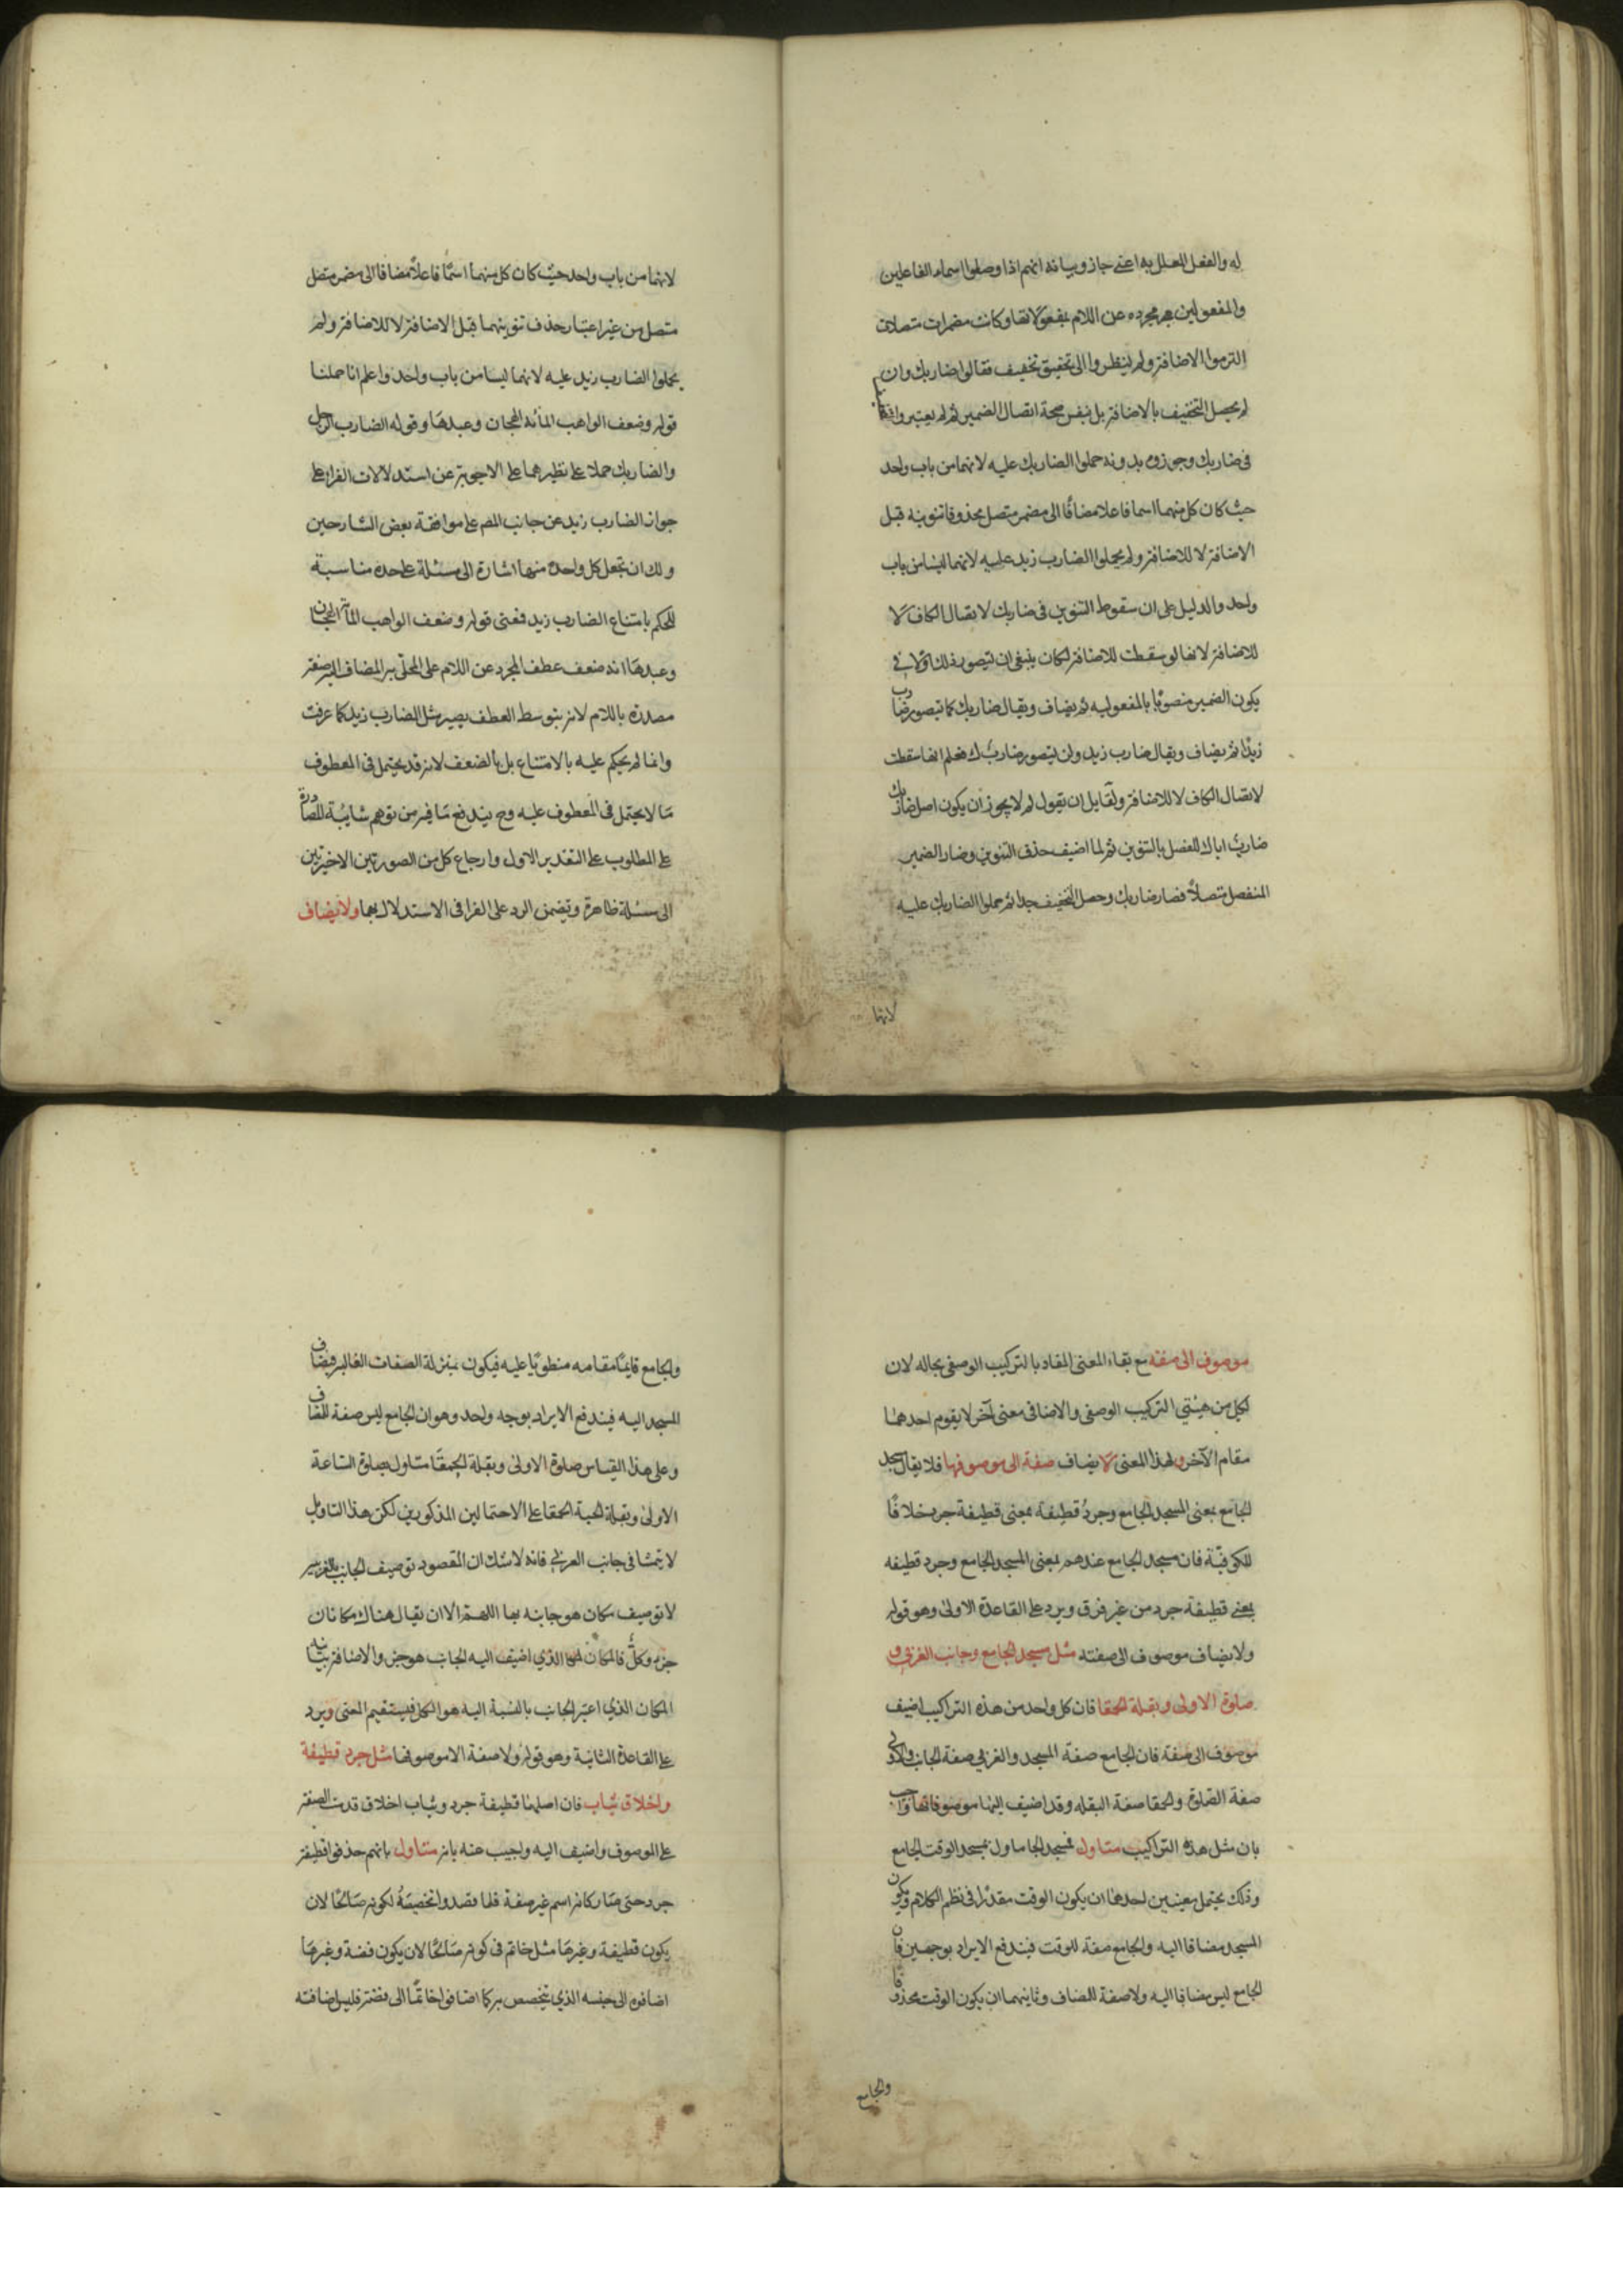 له والفعل المعلل به اعنى جاز وبيانه انهم اذا وصلوا اسماء الفاعلين
والمفعولين مجرده عن اللام بمفعولاتها وكانت مضمرات متصلات
التزموا الاضافة ولم ينظروا الى تحقيق تخفيف فقالوا ضاربك وان
لم يحصل التخفيف بالاضافة بل بنفس صحة اتصال الضمير ثم لم يعتبروا
فى ضاربك وجوزوه بدونه حملوا الضاربك عليه لانهما من باب واحد
حيث كان كل منهما اسما فاعلا مضافا الى مضمر متصل محذوفا تنوينه قبل
الاضافة لا للاضافة ولم يحملوا الضارب زيد عليه لانهما ليسا من باب
واحد والدليل على ان سقوط التنوين فى ضاربك لاتصال الكاف لا
للاضافة لانها لو سقطت للاضافة لكان ينبغى ان يتصور ذلك اولا فى
يكون الضمير منصوبا بالمفعوليه ثم يضاف ويقال ضاربك كما يتصور ضارب
زيدا ثم يضاف ويقال ضارب زيد ولن يتصور ضاربك فعلم انها سقطت
لاتصال الكاف لا للاضافة ولقايل ان يقول لم لا يجوز ان يكون اصل ضاربك
ضارب اياك للفصل بالتنوين ثم لما اضيف حذف التنوين وصار الضمير
المنفصل متصلا فصار ضاربك وحصل التخفيف جدا ثم حملوا الضاربك عليه
لانها
لانهما من باب واحد حيث كان كل منهما اسما فاعلا مضافا الى مضمر متصل
متصل من غير اعتبار حذف تنوينهما قبل الاضافة لا للاضافة ولم
يحملوا الضارب زيد عليه لانهما ليسا من باب واحد واعلم انا حملنا
قوله وضعف الواهب المائه الهجان وعبدها وقوله الضارب الرجل
والضاربك حملا على نظيرهما على الاجوبة عن استدلالات الفراء على
جواز الضارب زيد عن جانب المصم على موافقة بعض الشارحين
ولك ان تجعل كل واحدة منها اشارة الى مسئلة على حده مناسبة
للحكم بامتناع الضارب زيد فمعنى قوله وضعف الواهب المائة الهجان
وعبدها انه ضعف عطف المجرد عن اللام على المحلى به المضاف اليه صفة
مصدرة باللام لانه بتوسط العطف يصير مثل الضارب زيد كما عرفت
وانما لم يحكم عليه بالامتناع بل بالضعف لانه قد يحتمل فى المعطوف
ما لا يحتمل فى المعطوف عليه وح يندفع ما فيه من توهم شايبة المصادرة
على المطلوب على التقدير الاول وارجاع كل من الصورتين الاخيرتين
الى مسئلة ظاهرة ويتضمن الرد على الفرا فى الاستدلال بهما ولا يضاف
موصوف الى صفه مع بقاء المعنى المفاد بالتركيب الوصفى بحاله لان
لكل من هيئتي التركيب الوصفى والاضافى معنى آخر لا يقوم احدهما
مقام الآخر ولهذا المعنى لا يضاف صفة الى موصوفها فلا يقال مسجد
الجامع بمعنى المسجد الجامع وجرد قطيفة بمعنى قطيفة جرد خلافا
للكوفية فان مسجد الجامع عندهم بمعنى المسجد الجامع وجرد قطيفه
بمعنى قطيفة جرد من غير فرق ويرد على القاعدة الاولى وهو قوله
ولا يضاف موصوف الى صفته مثل مسجد الجامع وجانب الغربى و
صلوة الاولى وبقلة الحمقا فان كل واحد من هذه التراكيب اضيف
موصوف الى صفة فان الجامع صفة المسجد والغربى صفة الجانب والاولى
صفة الصلوة والحمقا صفة البقله وقد اضيف اليها موصوفاتها واجيب
بان مثل هذه التراكيب متاول فمسجد الجا ماول بمسجد الوقت الجامع
وذلك يحتمل معنيين احدهما ان يكون الوقت مقدرا فى نظم الكلام ويكون
المسجد مضافا اليه والجامع صفة للوقت فيندفع الايراد بوجهين فان
الجامع ليس مضافا اليه ولا صفة للمضاف وثانيهما ان يكون الوقت محذوفا
والجامع
والجامع قايما مقامه منطويا عليه فيكون بمنزلة الصفات الغالبه فيضاف
المسجد اليه فيندفع الايراد بوجه واحد وهو ان الجامع ليس صفة للمضاف
وعلى هذا القياس صلوة الاولى وبقلة الحمقا متاول بصلوة الساعة
الاولى وبقلة الحبة الحمقا على الاحتمالين المذكورين لكن هذا التاويل
لا يتمشا فى جانب الغربى فانه لا شك ان المقصود توصيف الجانب بالغربية
لا توصيف مكان هو جانبه بها اللهم الا ان يقال هناك مكانان
جزء وكل فالمكان الذي اضيف اليه الجانب هو جزء والاضافة بيانيه
المكان الذي اعتبر الجانب بالنسبة اليه هو الكل فيستقيم المعنى ويرد
على القاعدة الثانية وهو قوله ولا صفة الا موصوفها مثل جرد قطيفة
واخلاق ثياب فان اصلهما قطيفة جرد وثياب اخلاق قدمت الصفة
على الموصوف واضيف اليه واجيب عنه بانه متاول بانهم حذفوا قطيفة
جرد حتى صار كانه اسم غير صفة فلما قصدوا تخصيصه لكونه صالحا لان
يكون قطيفة وغيرها مثل خاتم فى كونه صالحا لان يكون فضة وغيرها
اضافوه الى جنسه الذي يتخصص به كما اضافوا خاتما الى فضة فليس اضافته